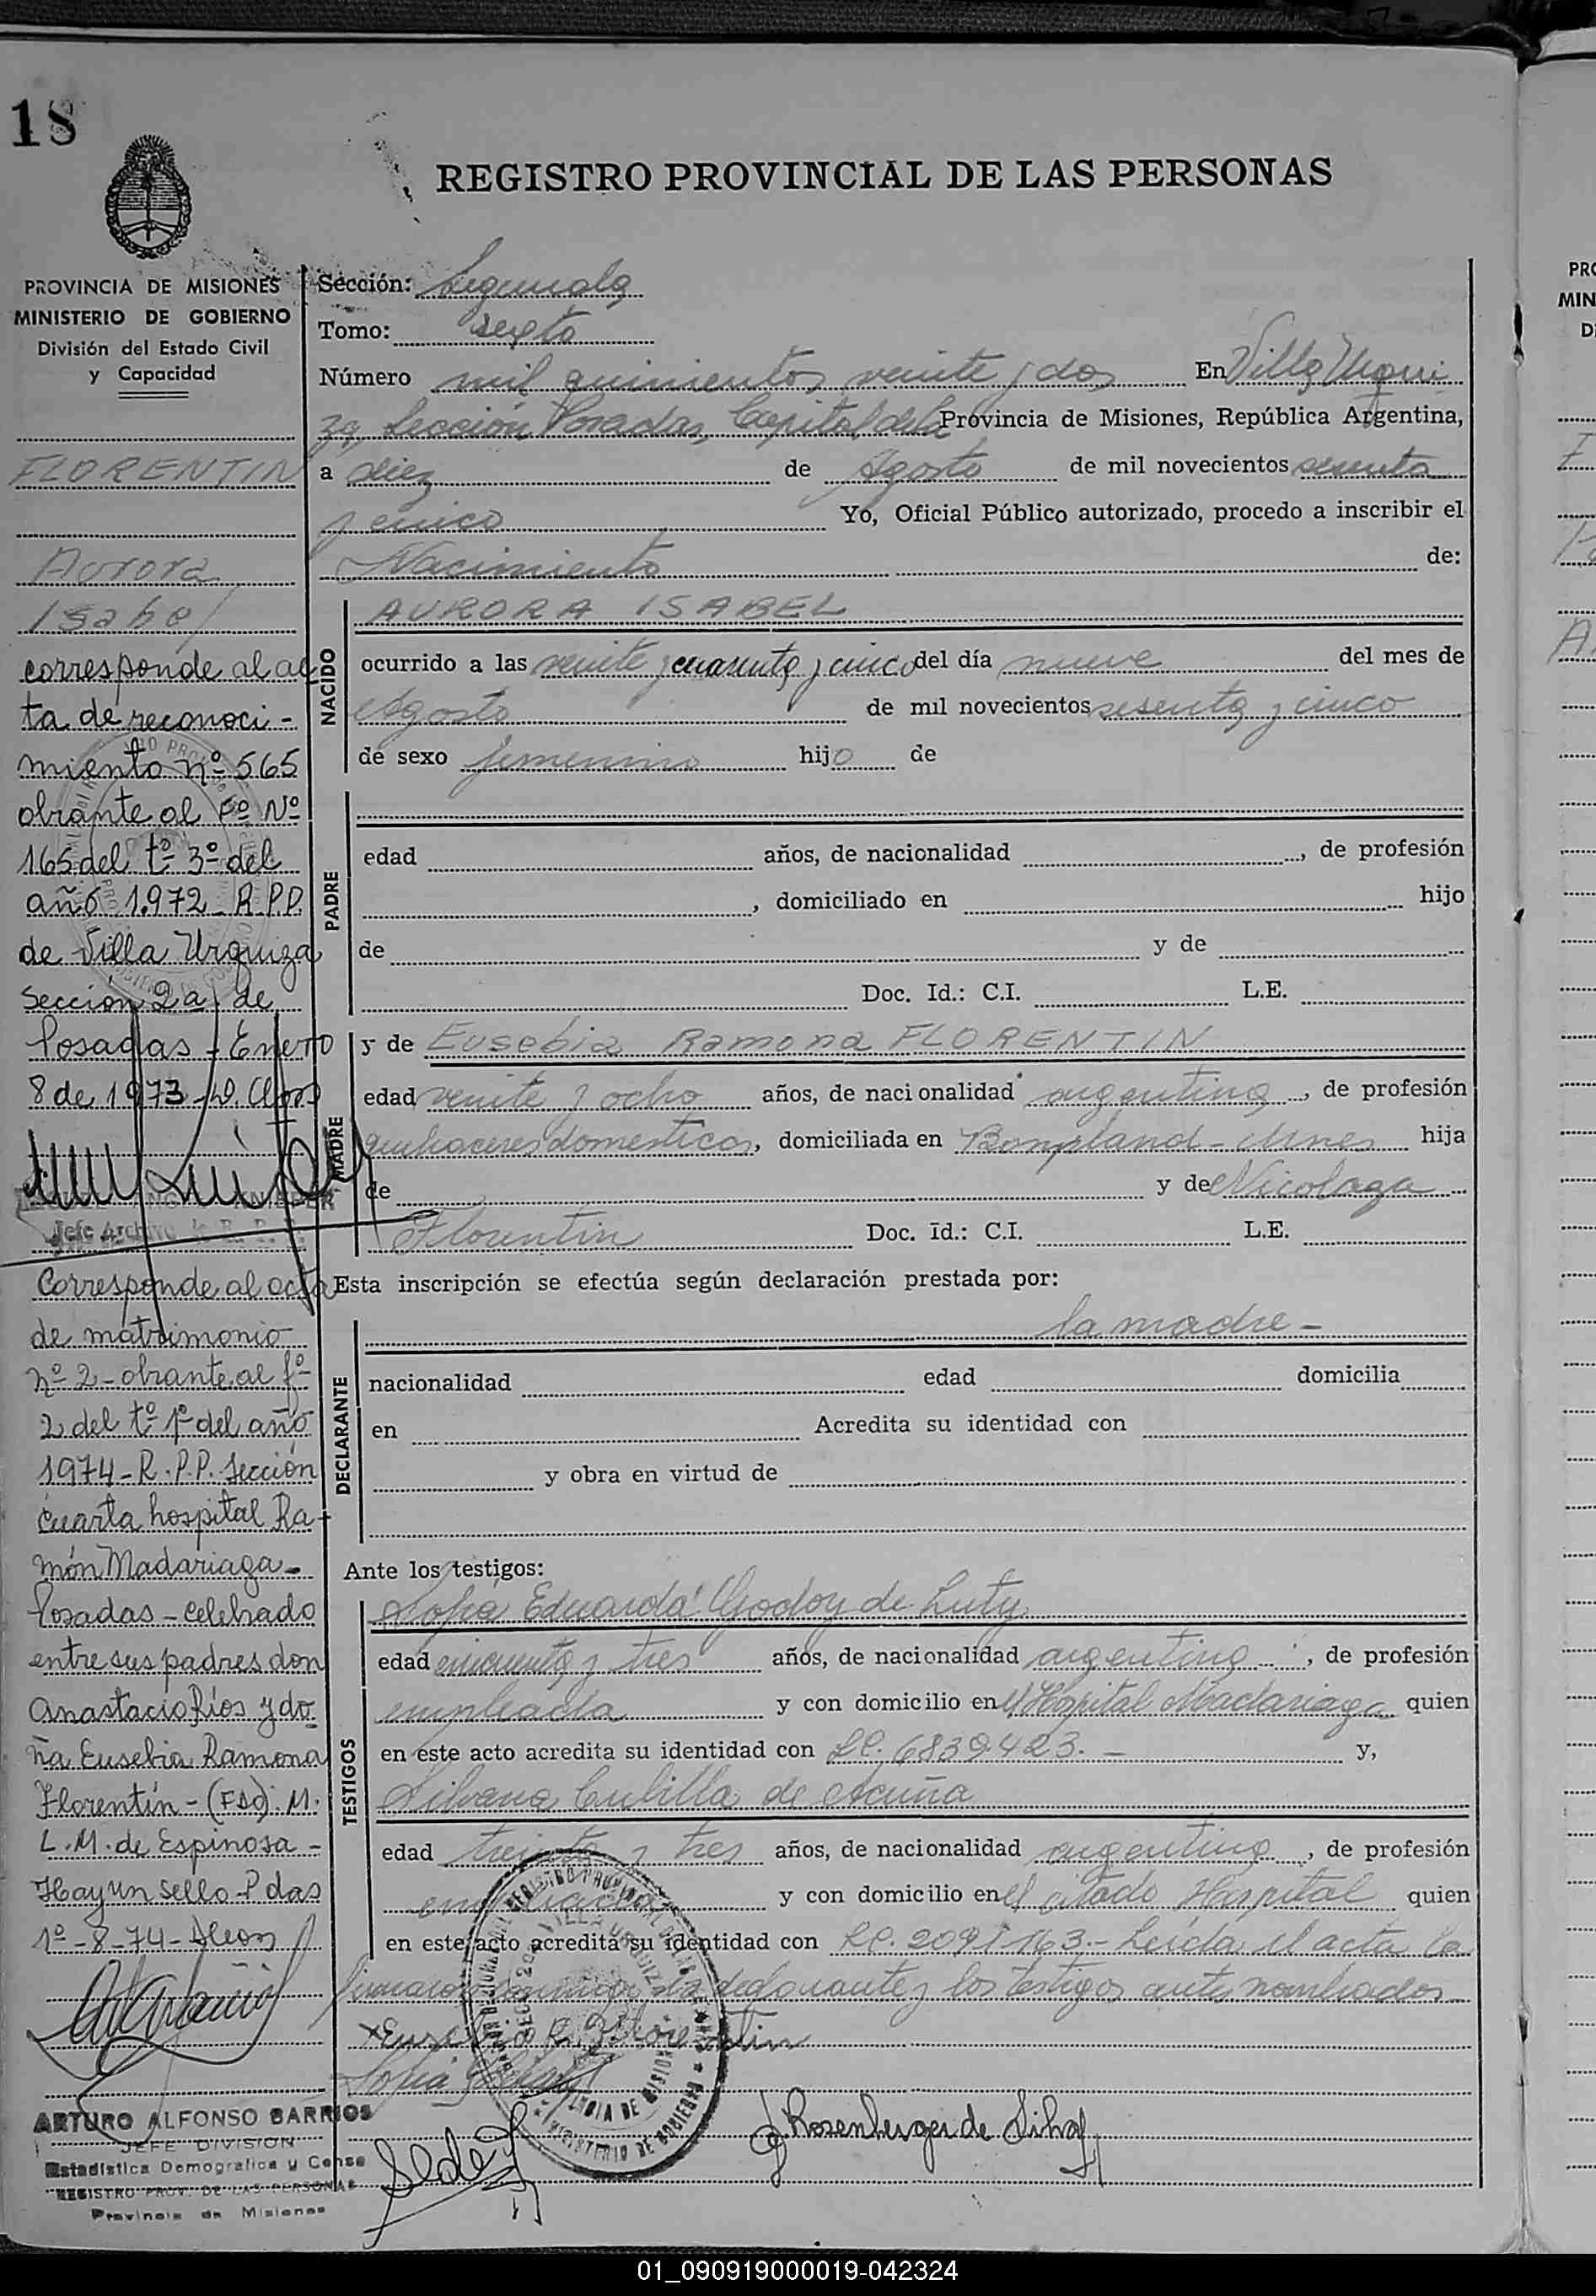 18
REGISTRO PROVINCIAL DE LAS PERSONAS
PROVINCIA DE MISIONES
MINISTERIO DE GOBIERNO
División del Estado Civil
y Capacidad
FLORENTIN
Aurora
Isabel
corresponde al ac
ta de reconoci-
miento nº 565
obrante al Fº Nº
165 del tº 3º del
año 1.972 - R.P.P.
de Villa Urquiza
Sección 2a, de
Posadas - Enero
8 de 1973 -
Jefe Archivo
Corresponde al acta
de matrimonio
nº 2 - obrante al fº
2 del tº 1º del año
1974 - R.P.P. Sección
cuarta hospital Ra-
món Madariaga -
Posadas - celebrado
entre sus padres don
Anastacio Ríos y do-
ña Eusebia Ramona
Florentín - (Fdo): M.
L. M. de Espinosa -
Hay un sello - Pdas
1º - 8 - 74 -
ARTURO ALFONSO BARRIOS
JEFE DIVISION
Estadistica Demografica y Censo
REGISTRO PROV. DE LAS PERSONAS
Provincia de Misiones
Sección: Segunda
Tomo: sexto
Número mil quinientos veinte y dos En Villa Urqui
za, Sección Posadas, Capital de la Provincia de Misiones, República Argentina,
a diez de Agosto de mil novecientos sesenta
y cinco Yo, Oficial Público autorizado, procedo a inscribir el
Nacimiento de:
NACIDO
AURORA ISABEL
ocurrido a las veinte y cuarenta y cinco del día nueve del mes de
Agosto de mil novecientos sesenta y cinco
de sexo femenino hijo de
PADRE
edad años, de nacionalidad , de profesión
, domiciliado en hijo
de y de
Doc. Id.: C.I. L.E.
MADRE
y de Eusebia Ramona FLORENTIN
edad veinte y ocho años, de nacionalidad argentina, de profesión
quehaceres domesticos, domiciliada en Bompland - Mnes hija
de y de Nicolaza
Florentin Doc. Id.: C.I. L.E.
Esta inscripción se efectúa según declaración prestada por:
DECLARANTE
la madre -
nacionalidad edad domicilia
en Acredita su identidad con
y obra en virtud de
Ante los testigos:
TESTIGOS
Sofia Eduarda Godoy de Luty
edad cincuenta y tres años, de nacionalidad argentina, de profesión
empleada y con domicilio en Hospital Madariaga quien
en este acto acredita su identidad con LC. 6839423. - y,
Silvana Cubilla de Acuña
edad treinta y tres años, de nacionalidad argentina, de profesión
empleada y con domicilio en el citado Hospital quien
en este acto acredita su identidad con LC. 2091163.- Leída el acta la
firmaron conmigo, la declarante y los testigos antes nombrados
Eusebia R. Florentin
Sofia
PROVINCIA DE MISIONES
MINISTERIO DE GOBIERNO
Rosenberger de Silva
01_090919000019-042324